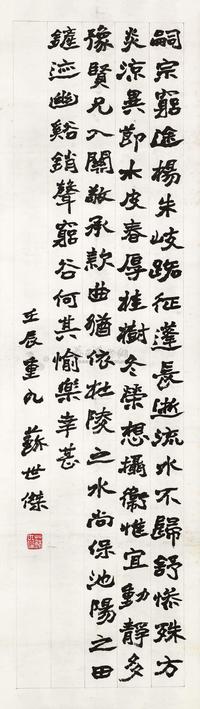 嗣宗窮途楊朱岐路征蓬長逝流水不歸舒慘殊方
炎涼異節木皮春厚桂樹冬榮想攝衛惟宜動靜多
豫賢兄入關敬承款曲猶依杜陵之水尚保池陽之田
鏟迹幽谿銷聲窮谷何其愉樂幸甚
壬辰重九 蘇世傑